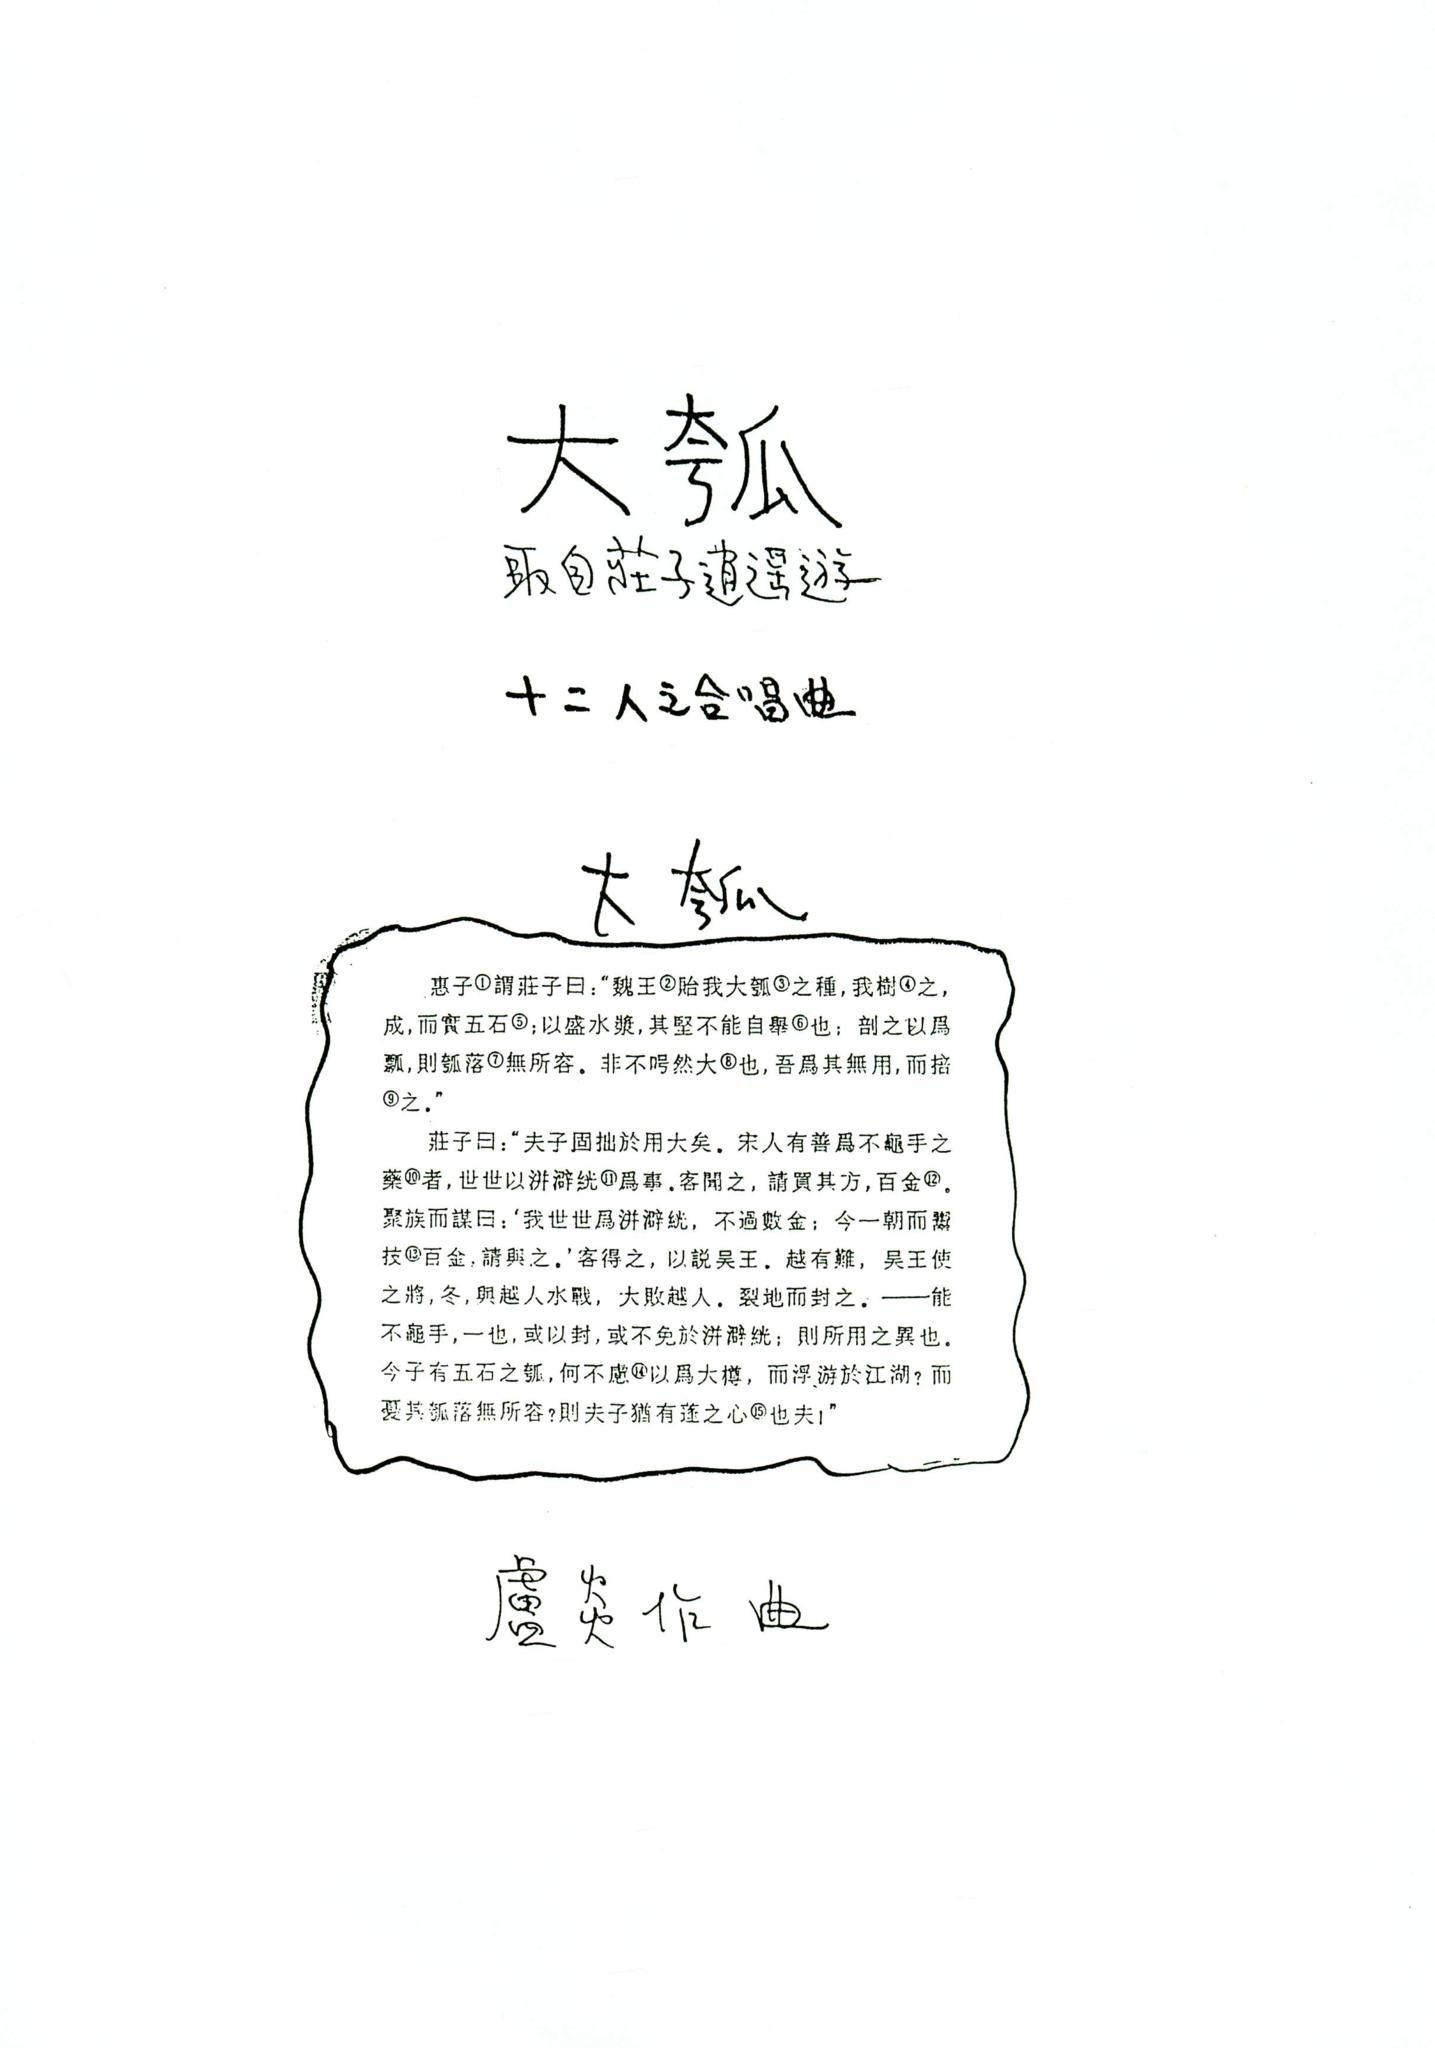 大瓠
取自莊子逍遙遊
十二人之合唱曲
大瓠
惠子①謂莊子曰：“魏王②貽我大瓠③之種，我樹④之，
成，而實五石⑤；以盛水漿，其堅不能自舉⑥也；剖之以爲
瓢，則瓠落⑦無所容．非不呺然大⑧也，吾爲其無用，而掊
⑨之．”
莊子曰：“夫子固拙於用大矣．宋人有善爲不龜手之
藥⑩者，世世以洴澼絖⑪爲事．客聞之，請買其方，百金⑫．
聚族而謀曰：‘我世世爲洴澼絖，不過數金；今一朝而鬻
技⑬百金，請與之．’客得之，以説吴王．越有難，吴王使
之將，冬，與越人水戰，大敗越人．裂地而封之．——能
不龜手，一也，或以封，或不免於洴澼絖；則所用之異也．
今子有五石之瓠，何不慮⑭以爲大樽，而浮游於江湖？而
憂其瓠落無所容？則夫子猶有蓬之心⑮也夫！”
盧炎作曲